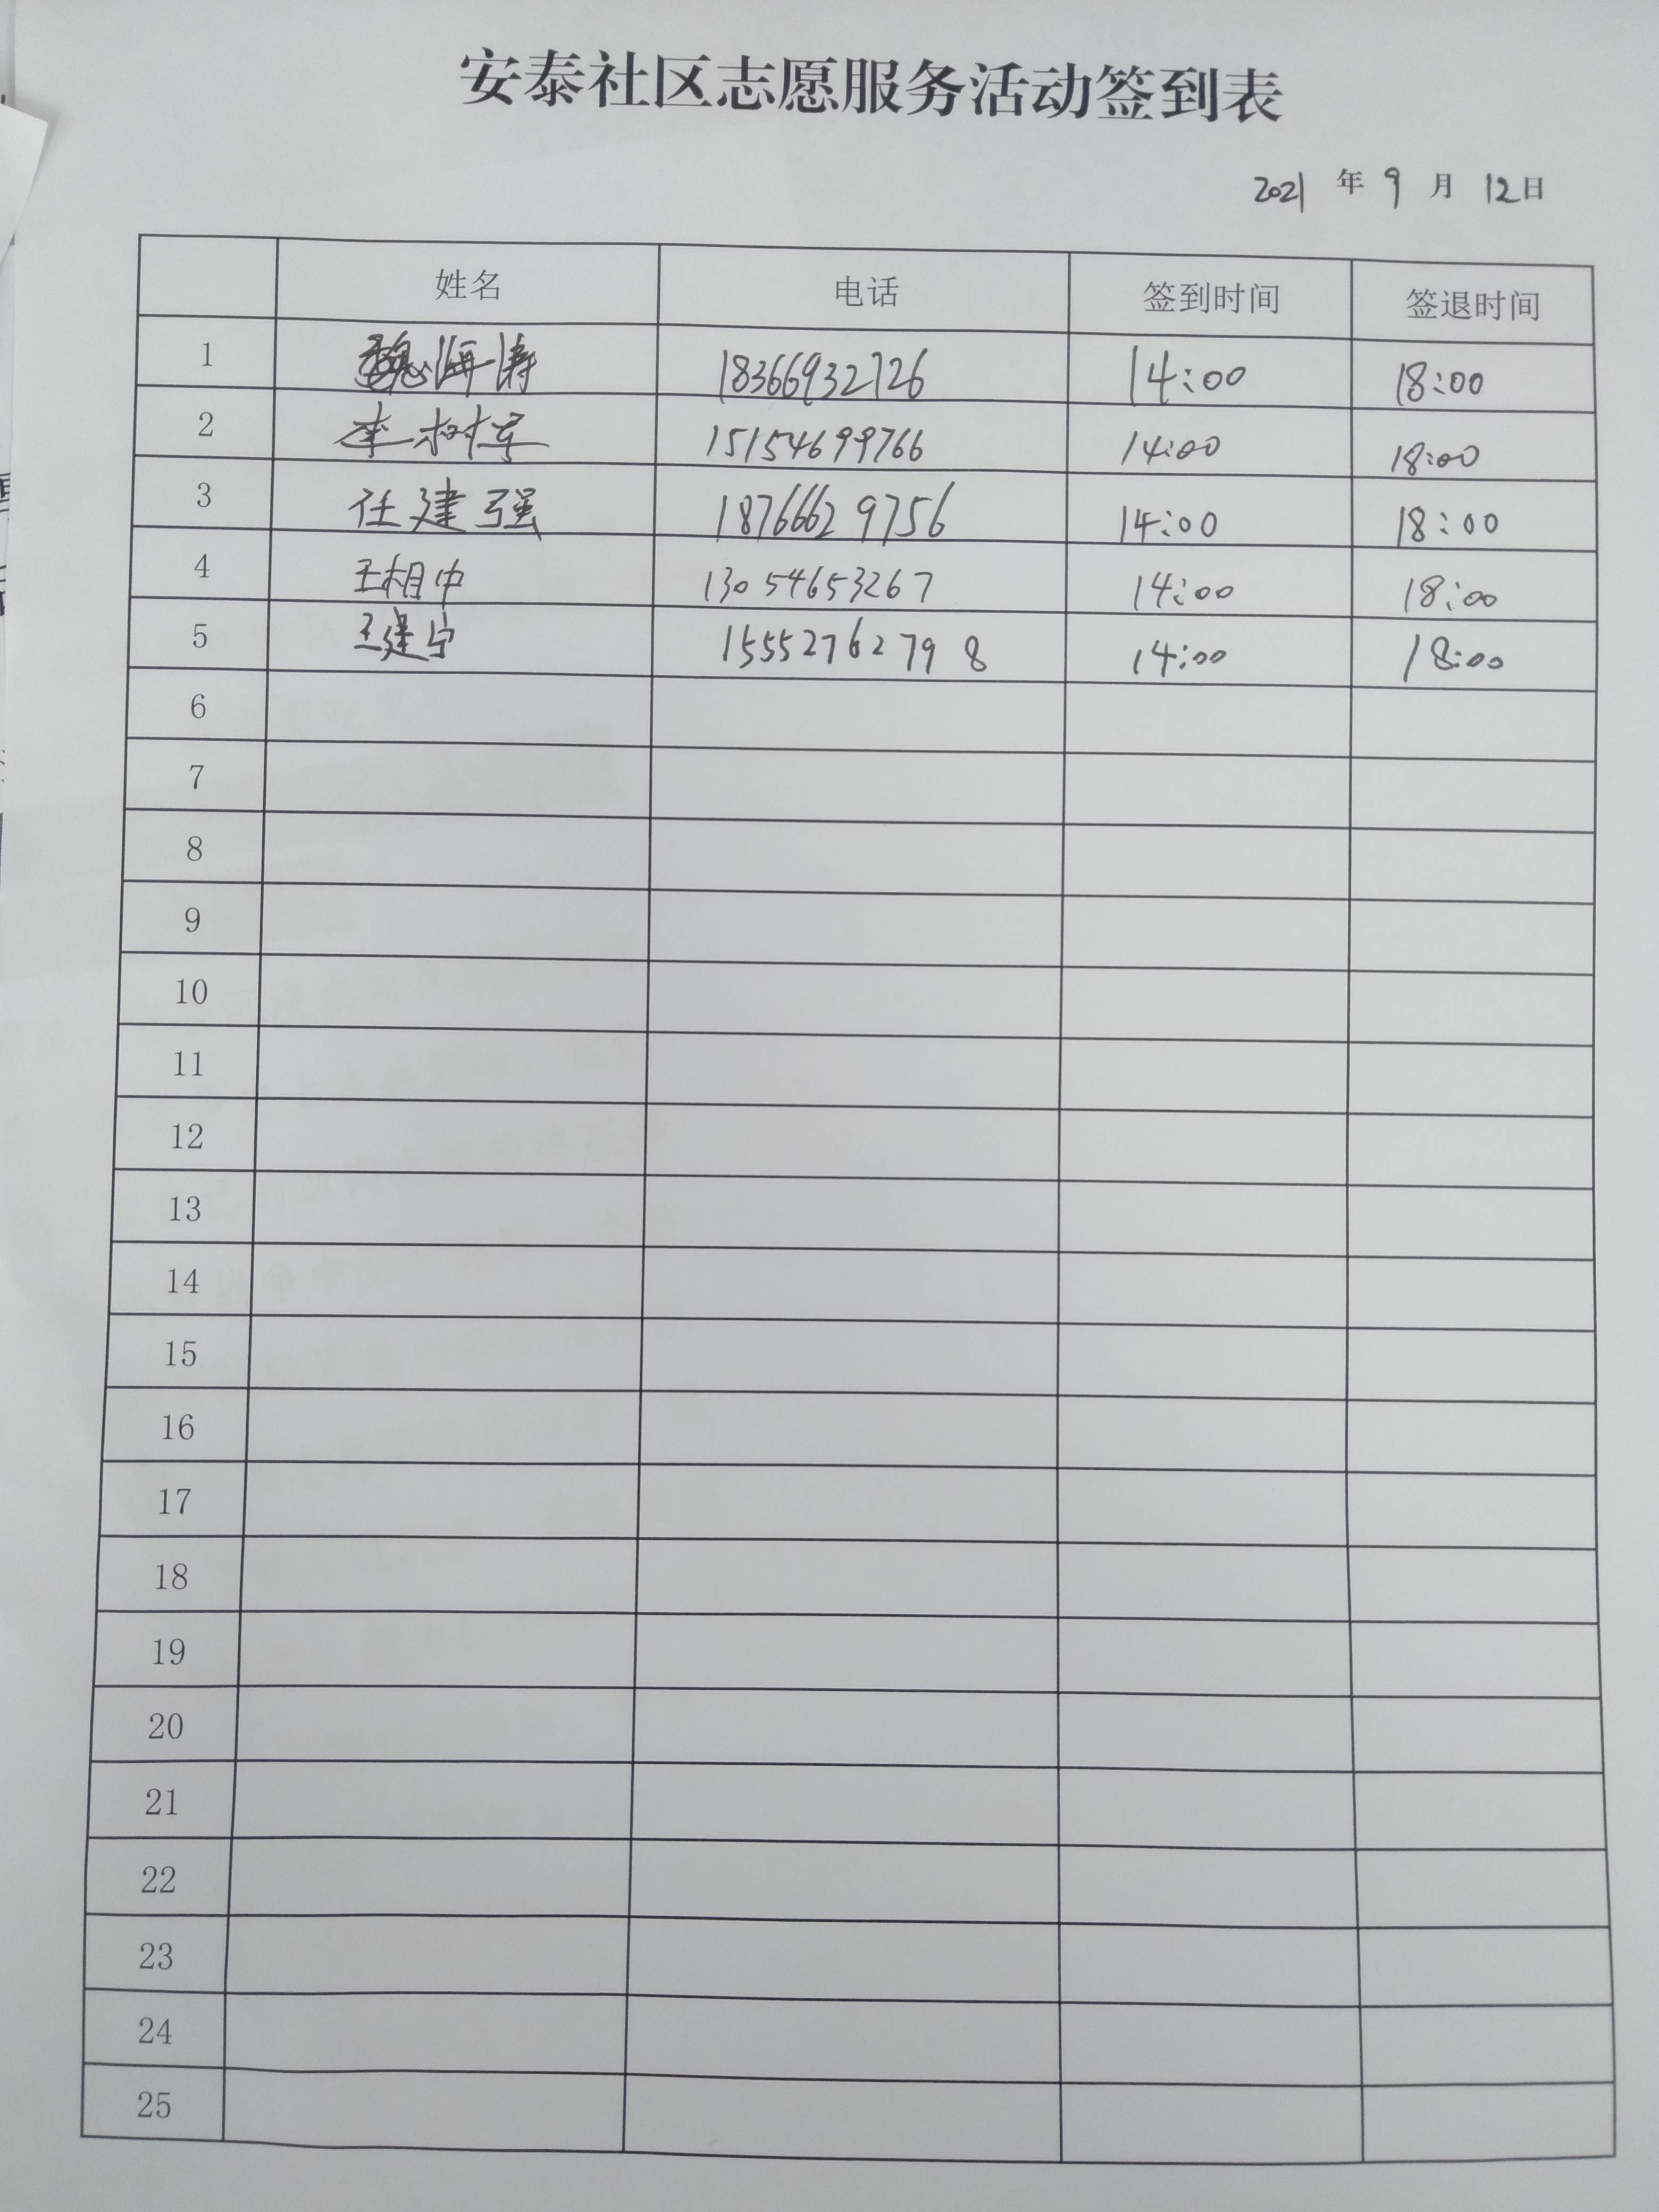 安泰社区志愿服务活动签到表
2021 年 9 月 12日
姓名 电话 签到时间 签退时间
1 魏海涛 18366932726 14:00 18:00
2 李树军 15154699766 14:00 18:00
3 任建强 18766629756 14:00 18:00
4 王相中 13054653267 14:00 18:00
5 王建宁 15552762798 14:00 18:00
6
7
8
9
10
11
12
13
14
15
16
17
18
19
20
21
22
23
24
25